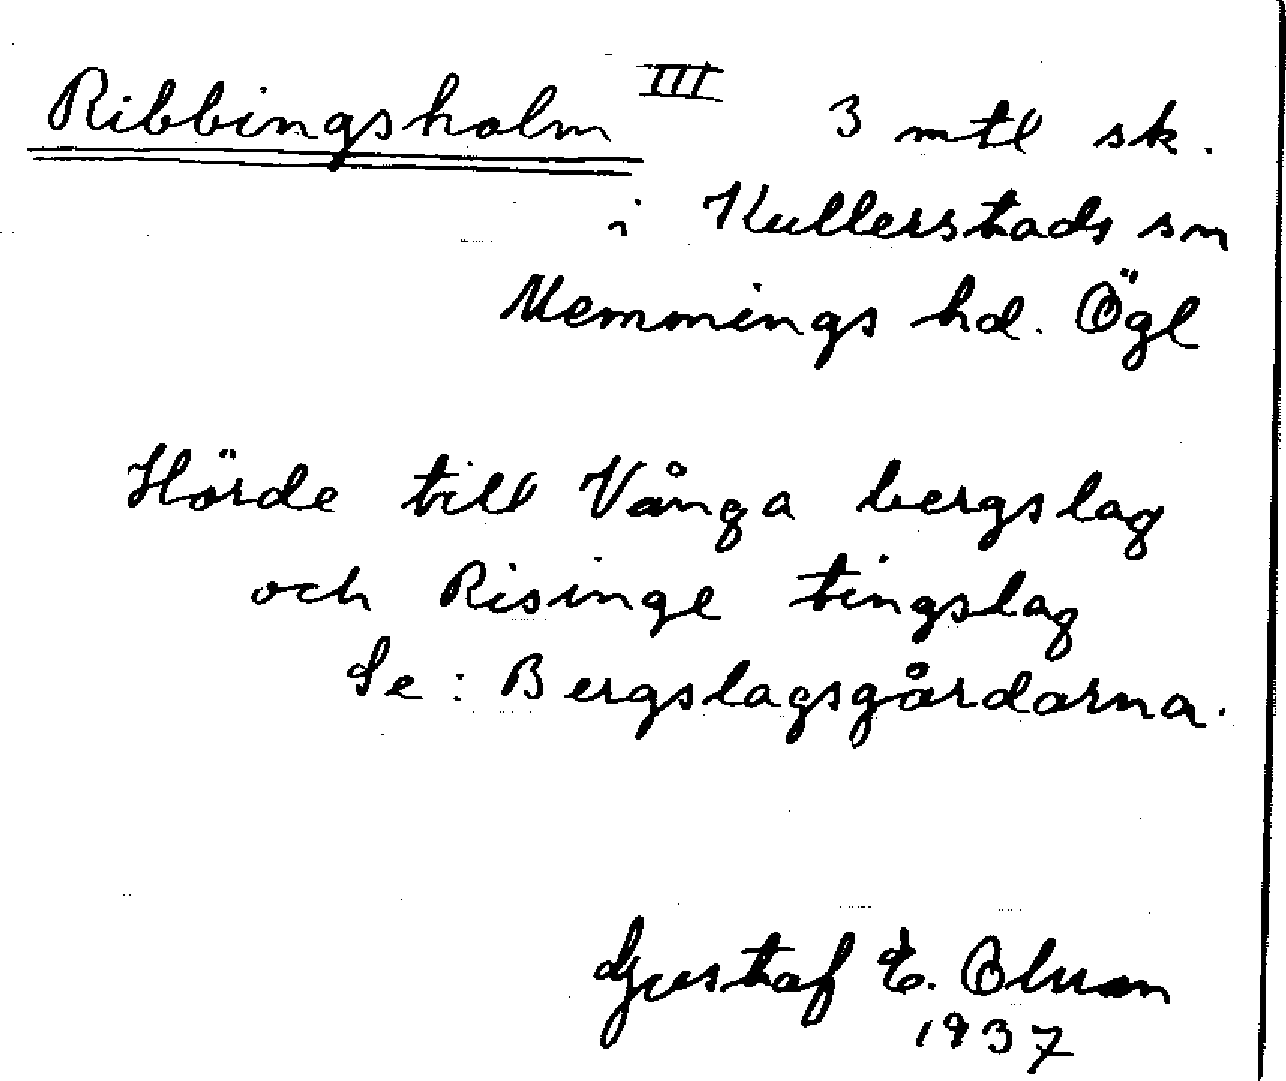 Ribbingsholm III 3 mtl sk.
i Kullerstads sn
Memmings hd. Ögl
Hörde till Vånga bergslag
och Risinge tingslag
Se: Bergslagsgårdarna.
Gustaf E. Olson
1937